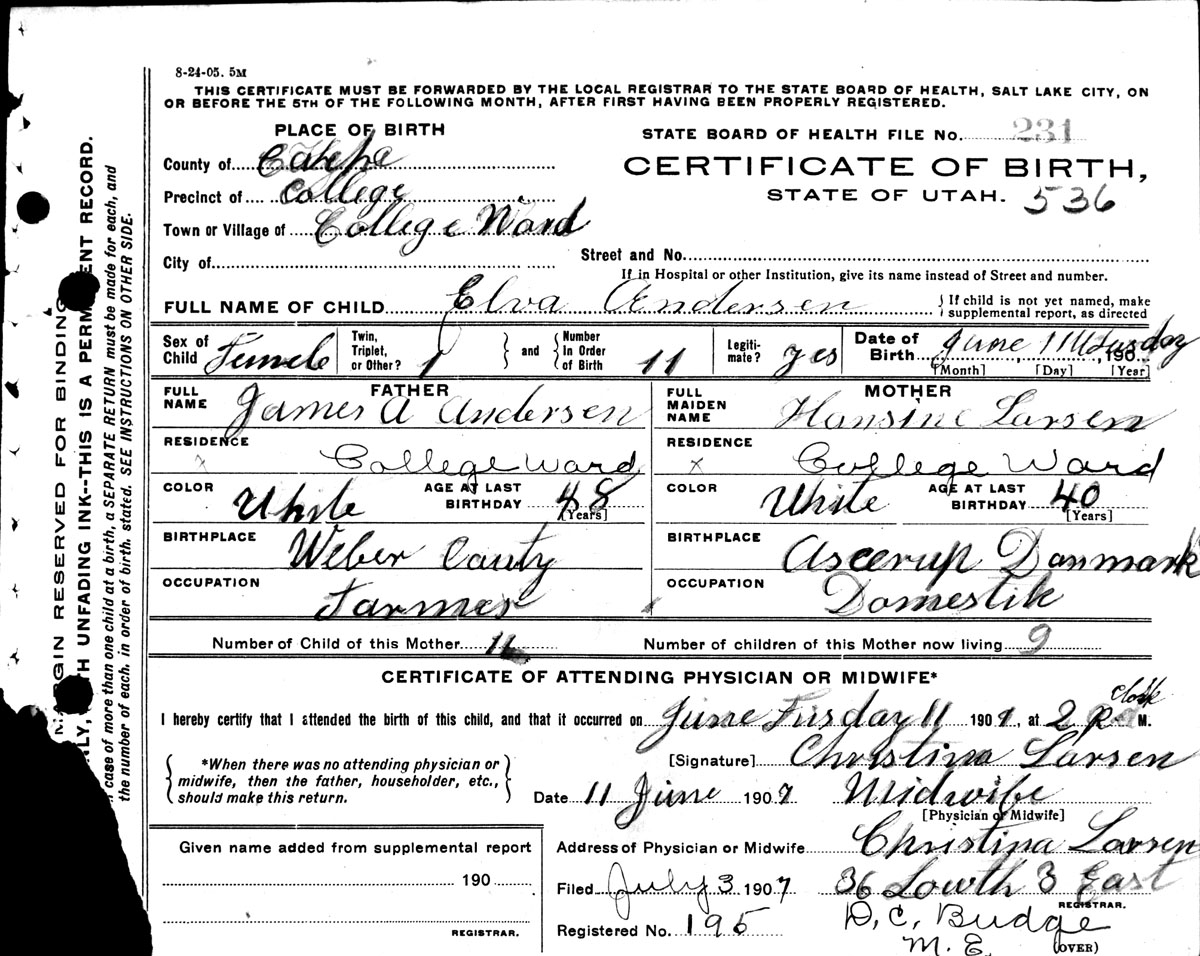 8-24-05. 5M
THIS CERTIFICATE MUST BE FORWARDED BY THE LOCAL REGISTRAR TO THE STATE BOARD OF HEALTH, SALT LAKE CITY, ON
OR BEFORE THE 5TH OF THE FOLLOWING MONTH, AFTER FIRST HAVING BEEN PROPERLY REGISTERED.
PLACE OF BIRTH
STATE BOARD OF HEALTH FILE No. 231
County of
CERTIFICATE OF BIRTH,
Precinct of College
STATE OF UTAH. 536
Town or Village of College Ward
City of
Street and No.
If in Hospital or other Institution, give its name instead of Street and number.
FULL NAME OF CHILD Elva Andersen
If child is not yet named, make supplemental report, as directed
Sex of Child Female
Twin, Triplet, or Other? 1
and
Number In Order of Birth 11
Legiti-mate? yes
Date of Birth June 11 190
[Month] [Day] [Year]
FATHER
FULL NAME James A Andersen
MOTHER
FULL MAIDEN NAME Hansine Larsen
RESIDENCE
x College Ward
RESIDENCE
x College Ward
COLOR White
AGE AT LAST BIRTHDAY 48
[Years]
COLOR White
AGE AT LAST BIRTHDAY 40
[Years]
BIRTHPLACE Weber Conty
BIRTHPLACE Ascerup Danmark
OCCUPATION Farmer
OCCUPATION Domestik
Number of Child of this Mother 11
Number of children of this Mother now living 9
CERTIFICATE OF ATTENDING PHYSICIAN OR MIDWIFE*
I hereby certify that I attended the birth of this child, and that it occurred on June Tusday 11 1907, at 2 P M.
clock
*When there was no attending physician or
midwife, then the father, householder, etc.,
should make this return.
[Signature] Christina Larsen
Date 11 June 1907 Midwife
[Physician or Midwife]
Given name added from supplemental report
190
REGISTRAR.
Address of Physician or Midwife Christina Larsen
Filed July 3 1907 36 South 3 East
REGISTRAR.
Registered No. 195 D. C. Budge
M. E.
(OVER)
GIN RESERVED FOR BINDING
NLY, TH UNFADING INK--THIS IS A PERM ENT RECORD.
case of more than one child at a birth, a SEPARATE RETURN must be made for each, and
the number of each, in order of birth, stated. SEE INSTRUCTIONS ON OTHER SIDE.